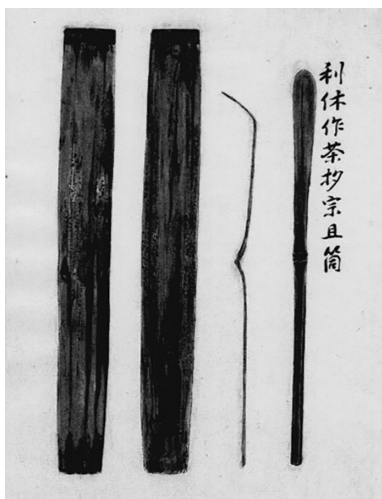 利休作茶抄宗旦筒